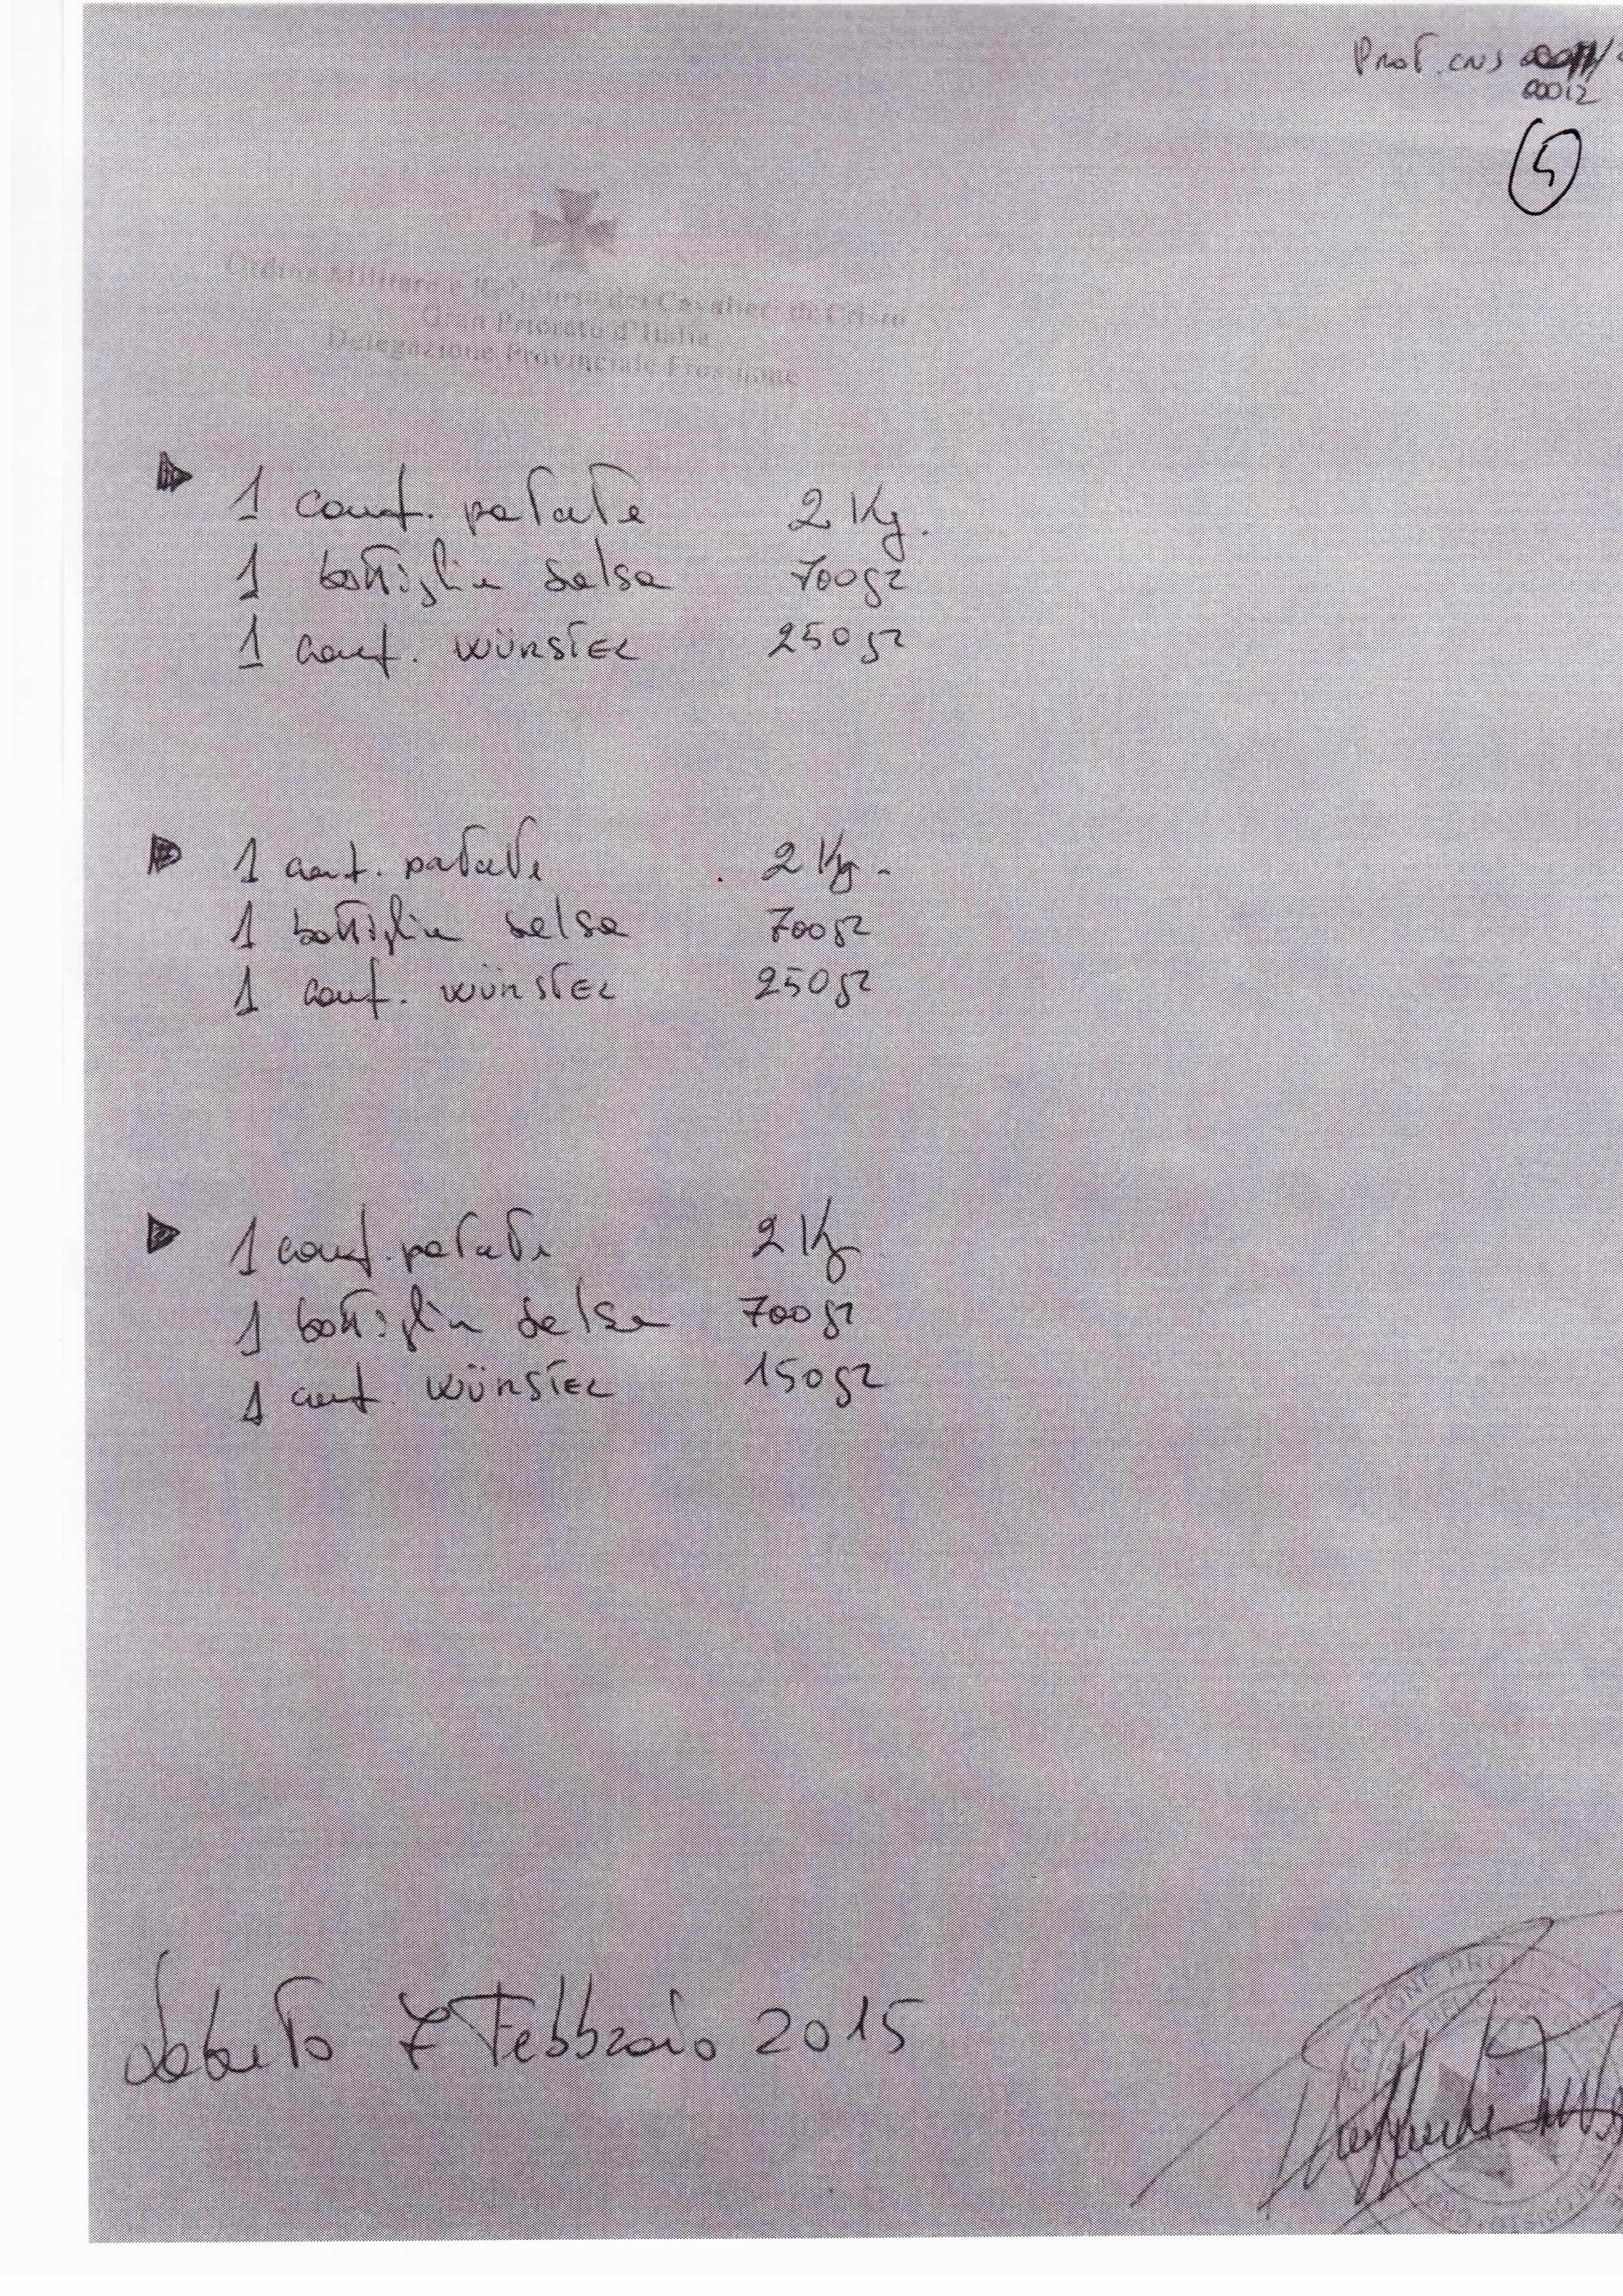 Prof. cns
00012
5
Ordine Militare e Religioso dei Cavalieri di Cristo
Gran Priorato d'Italia
Delegazione Provinciale Frosinone
1 conf. patate 2 Kg.
1 bottiglia salsa 700gr
1 conf. WÜRSTEL 250gr
1 conf. patate 2 Kg.
1 bottiglia salsa 700gr
1 conf. WÜRSTEL 250gr
1 conf. patate 2 Kg
1 bottiglia salsa 700gr
1 conf. WÜRSTEL 150gr
7 Febbraio 2015